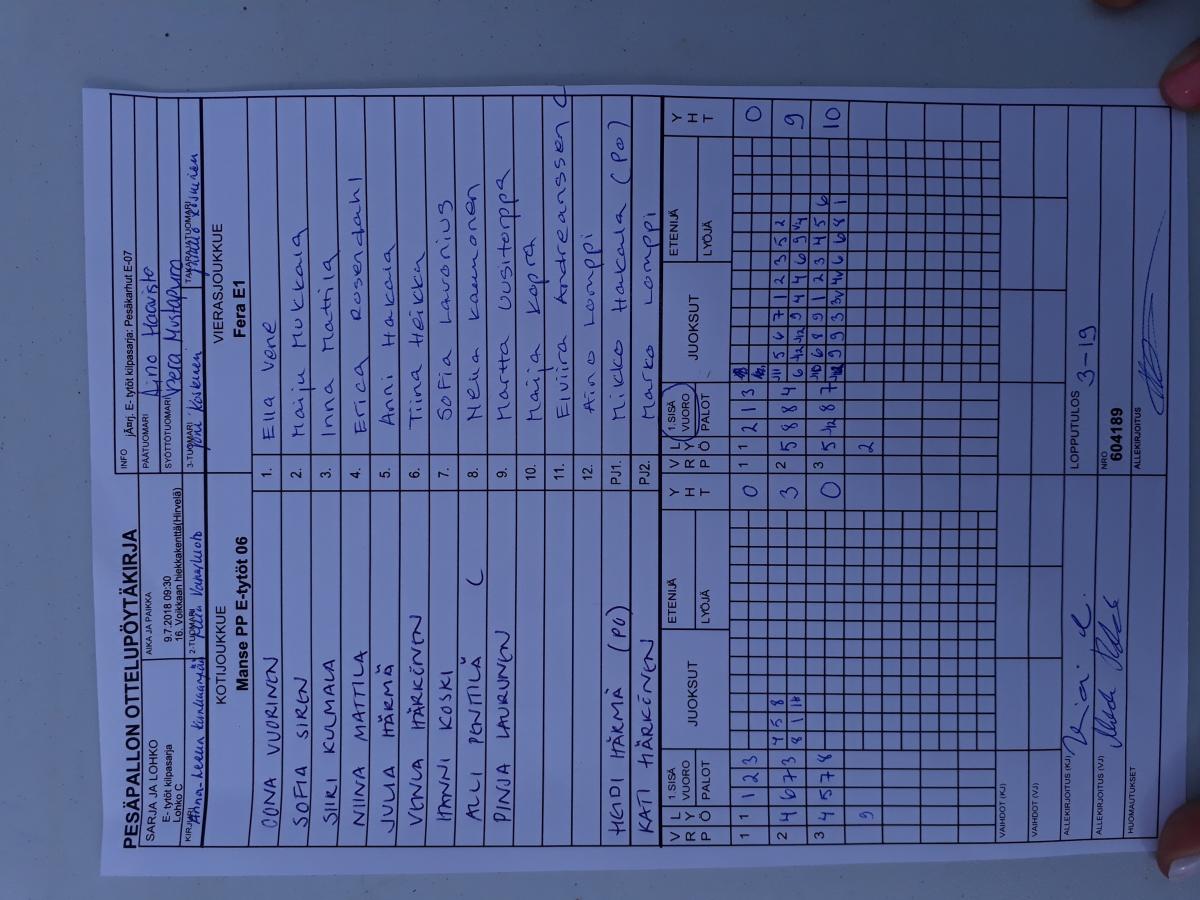 PESÄPALLON OTTELUPÖYTÄKIRJA
SARJA JA LOHKO
E- tytöt kilpasarja
Lohko C
AIKA JA PAIKKA
9.7.2018 09:30
16. Voikkaan hiekkakenttä(Hirvelä)
INFO
jÃ¤rj. E- tytöt kilpasarja: Pesäkarhut E-07
PÄÄTUOMARI Aino Haavisto
SYÖTTÖTUOMARI
KIRJURI
2-TUOMARI
3-TUOMARI Joni Koskinen
TAKARAJATUOMARI
KOTIJOUKKUE
Manse PP E-tytöt 06
VIERASJOUKKUE
Fera E1
OONA VUORINEN 1. Ella Vene
SOFIA SIREN 2. Maiju Mukkala
SIIRI KULMALA 3. Inna Mattila
NIINA MATTILA 4. Erica Rosendahl
JULIA HÄRMÄ 5. Anni Hakala
VENLA HÄRKÖNEN 6. Tiina Heikka
HANNI KOSKI 7. Sofia Lavonius
ALLI PENTTILÄ C 8. Nella Kaunonen
PINJA LAURUNEN 9. Martta Uusitorppa
10. Maija Kopra
11. Elviira Andreanssen C
12. Aino Lomppi
HEIDI HÄRMÄ (PO) PJ1. Mikko Hakala (PO)
KATI HÄRKÖNEN PJ2. Marko Lomppi
V R P L Y Ö 1.SISÄ VUORO PALOT JUOKSUT ETENIJÄ LYÖJÄ Y H T
V R P L Y Ö 1.SISÄ VUORO PALOT JUOKSUT ETENIJÄ LYÖJÄ Y H T
1 1 1 2 3 0
1 1 2 1 3 0
2 4 6 7 3 4 5 8 3
8 1 11
2 5 8 8 4 11 5 6 7 1 2 3 5 2 9
3 4 5 7 8 0
3 5 12 8 7 10 6 8 9 1 2 3 4 5 6 10
9
2
VAIHDOT (KJ)
VAIHDOT (VJ)
ALLEKIRJOITUS (KJ)
ALLEKIRJOITUS (VJ)
HUOMAUTUKSET
LOPPUTULOS 3-19
NRO
604189
ALLEKIRJOITUS